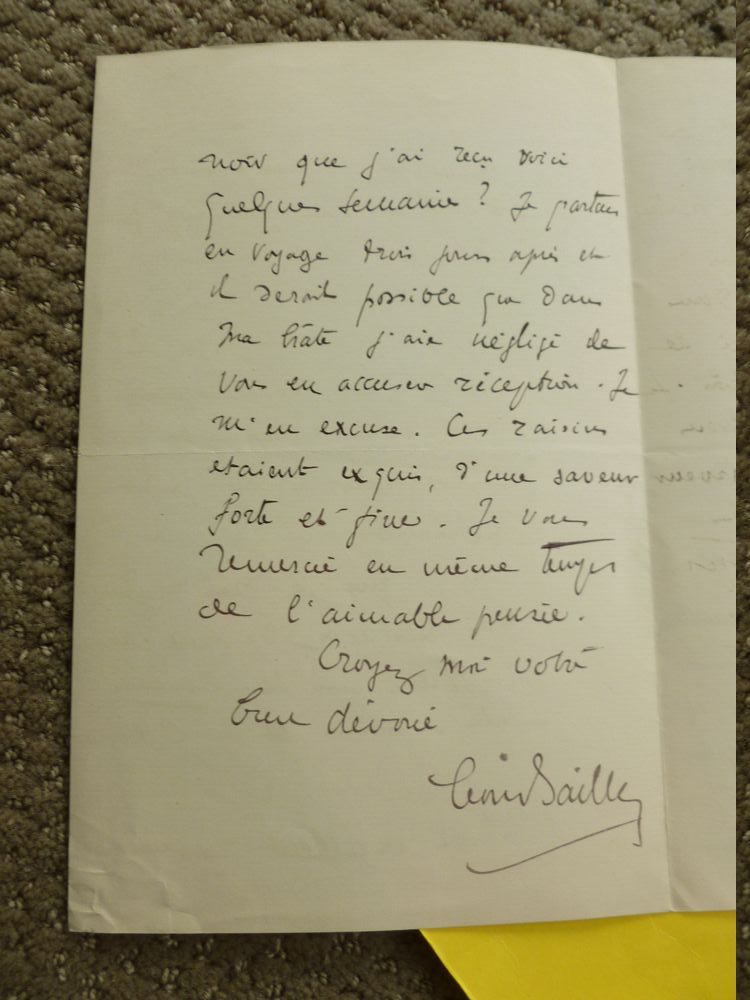 noir que j'ai reçu voici
quelques semaines ? Je partais
en voyage trois jours après et
il serait possible que dans
ma hâte j'aie négligé de
vous en accuser réception. Je
m'en excuse. Ces raisins
étaient exquis, d'une saveur
forte et fine. Je vous
remercie en même temps
de l'aimable pensée.
Croyez moi votre
bien dévoué
Bailly